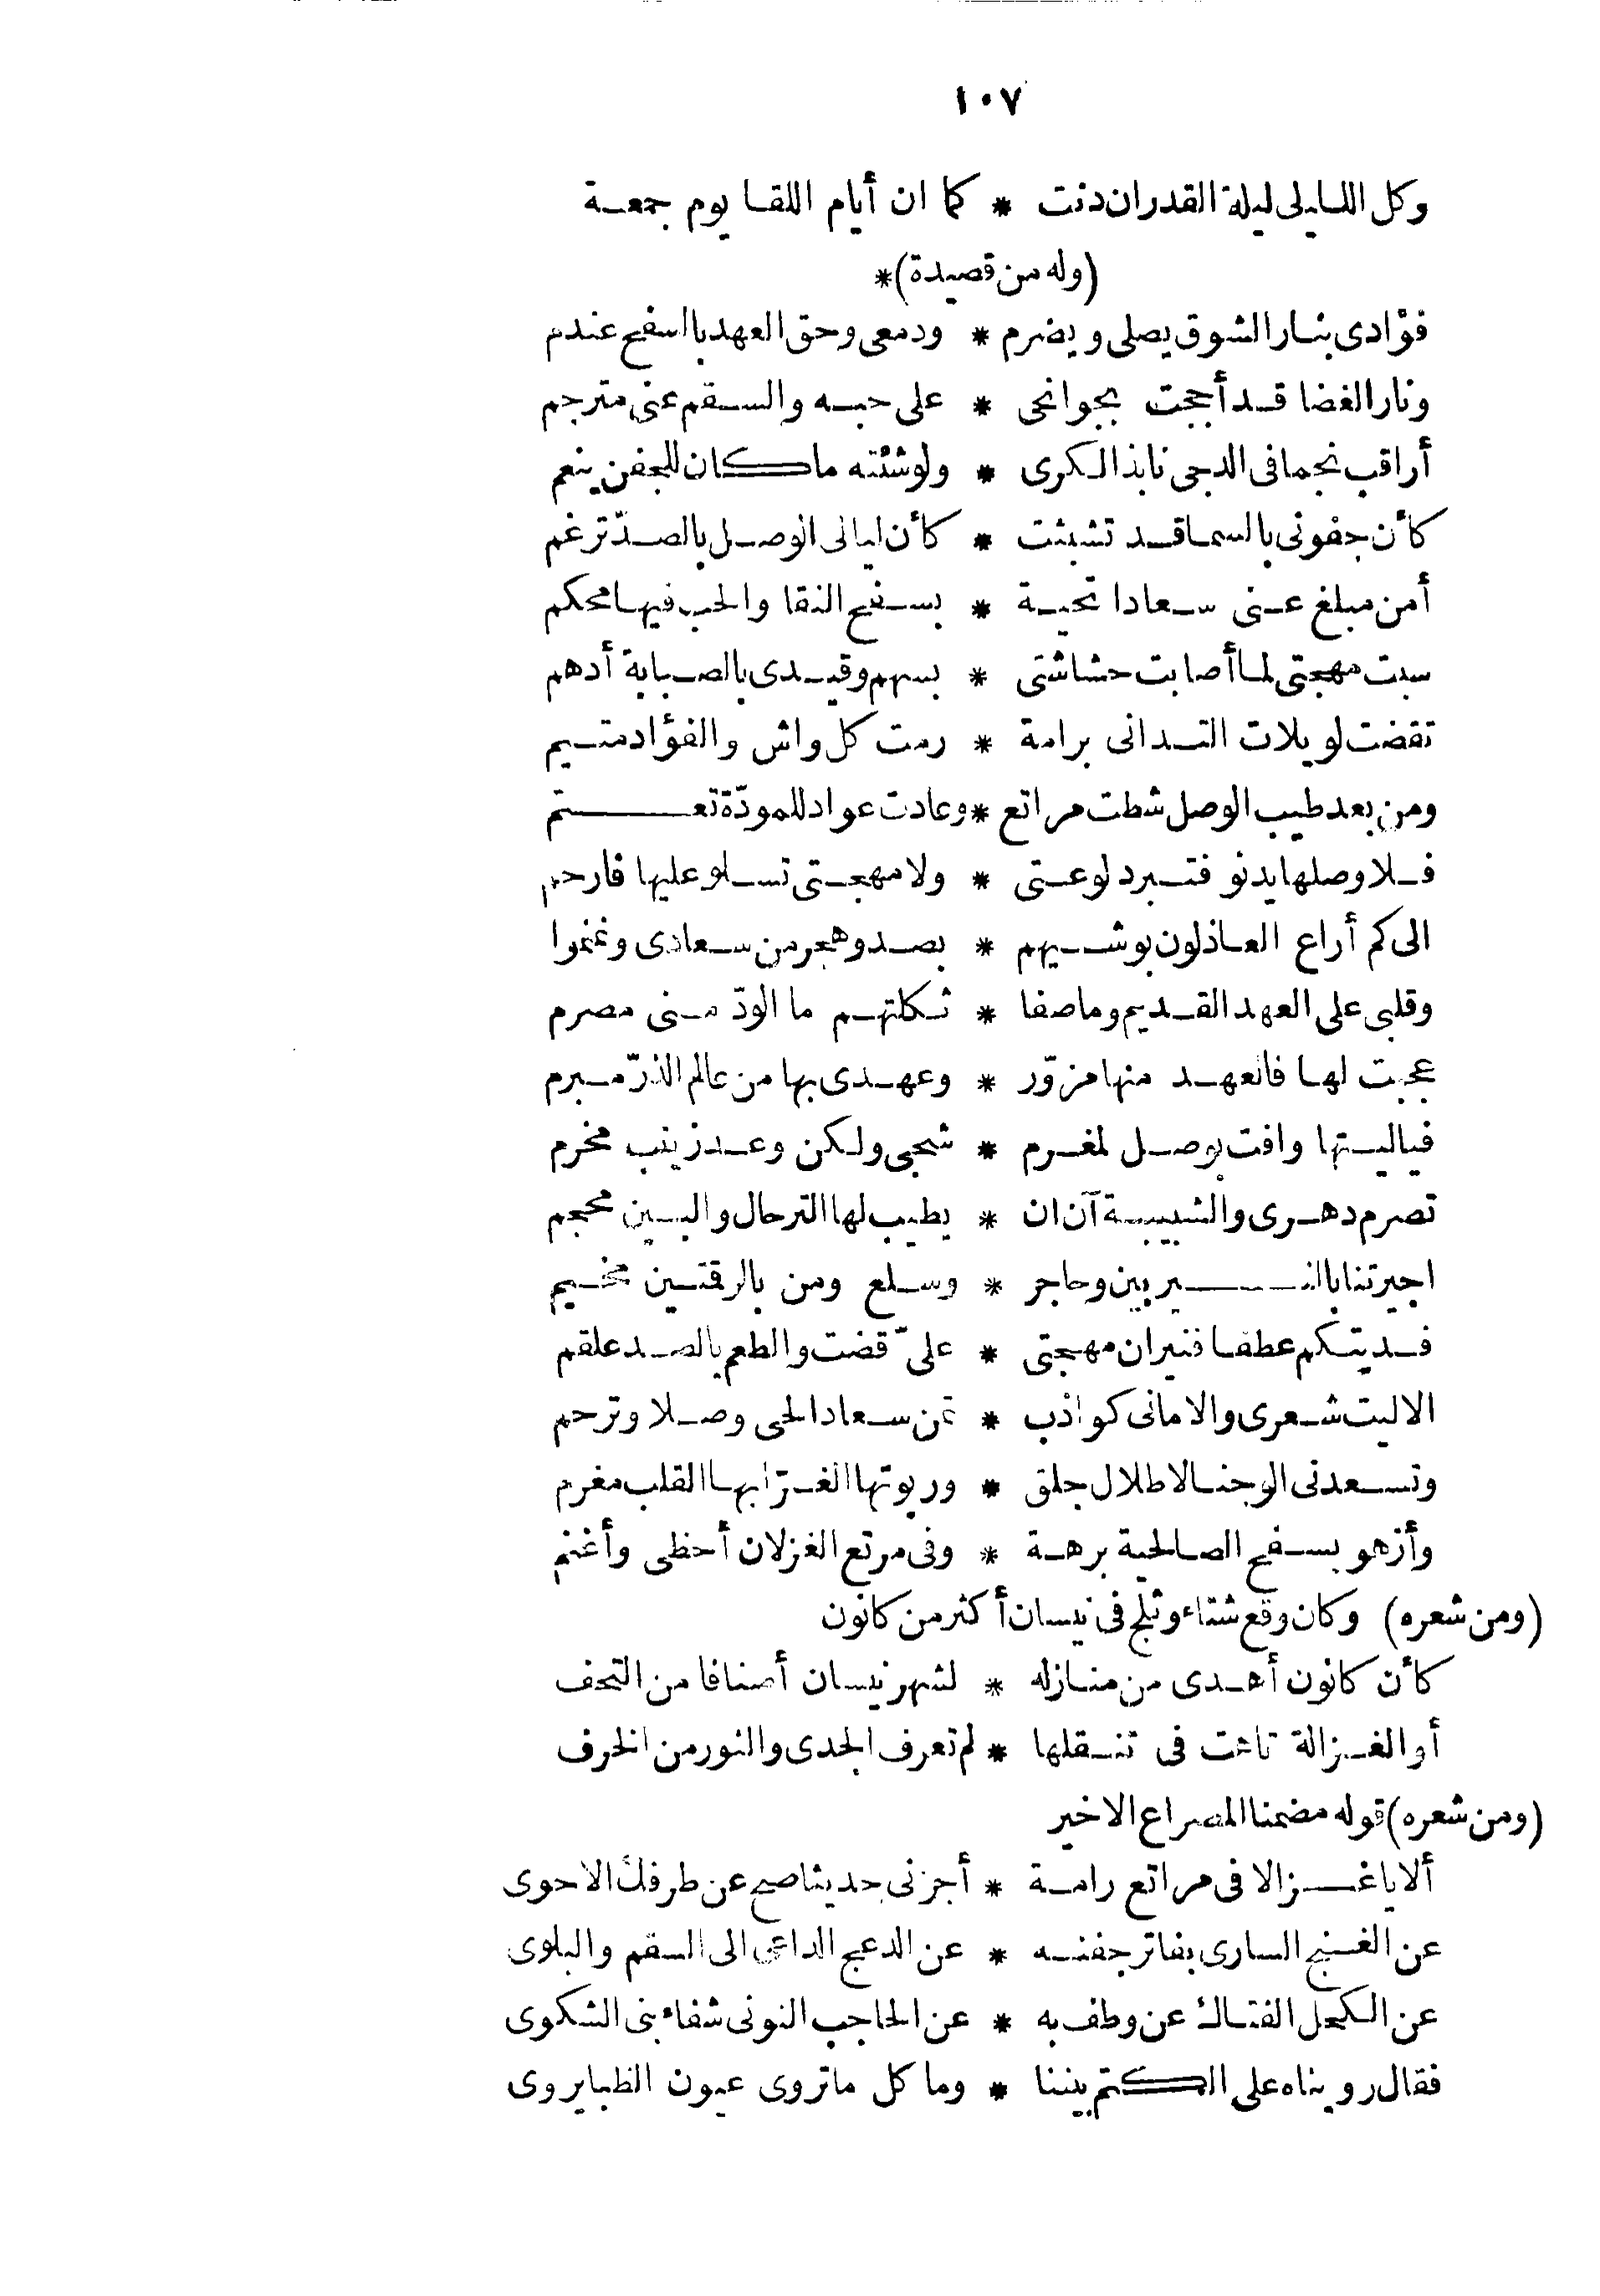 ١٠٧
وكل الليالى ليلة القدر ان دنت * كما ان أيام اللقا يوم جمعة
(وله من قصيدة)*
فؤادى بنار الشوق يصلى ويضرم * ودمعى وحق العهد بالسفح عندم
ونار الغضا قد أججت بجوانحى * على حبه والسقم عنى مترجم
أراقب نجما فى الدجى نابذ الكرى * ولو شئته ما كان للجفن ينعم
كأن جفونى بالسما قد تشبثت * كأن ليالى الوصل بالصدّ ترغم
أمن مبلغ عنى سعادا تحية * بسفح النقا والحب فيها محكم
سبت مهجتى لما أصابت حشاشتى * بسهم وقيدى بالصبابة أدهم
تقضت لويلات التدانى برامة * رمت كل واش والفؤاد متيم
ومن بعد طيب الوصل شطت مراتع * وعادت عواد للمودّة تعتم
فلا وصلها يدنو فتبرد لوعتى * ولا مهجتى تسلو عليها فارحم
الى كم أراع العاذلون بوشيهم * بصد وهجر من سعادى ونمنموا
وقلبى على العهد القديم وما صفا * ثكلتهم ما الودّ منى مصرم
عجبت لها فالعهد منها مزوّر * وعهدى بها من عالم الذرّ مبرم
فياليتها وافت بوصل لمغرم * شجى ولكن وعد زينب مخرم
تصرم دهرى والشبيبة آن ان * يطيب لها الترحال والبين محجم
اجيرتنا بالنيربين وحاجر * وسلع ومن بالرقمتين مخيم
فديتكم عطفا فنيران مهجتى * علىّ قضت والطعم بالصد علقم
الاليت شعرى والامانى كواذب * تمن سعاد الحى وصلا وترحم
وتسعدنى الوجنا لاطلال جلق * وربوتها الغرّا بها القلب مغرم
وأزهو بسفح الصالحية برهة * وفى مرتع الغزلان أحظى وأغنم
(ومن شعره) وكان وقع شتاء وثلج فى نيسان أكثر من كانون
كأن كانون أهدى من منازله * لشهر نيسان أصنافا من التحف
أو الغزالة تاهت فى تنقلها * لم تعرف الجدى والثور من الخرف
(ومن شعره) قوله مضمنا المصراع الاخير
ألا يا غزالا فى مراتع رامة * أجزنى حديثا صح عن طرفك الاحوى
عن الغنج السارى بفاتر جفنه * عن الدعج الداعى الى السقم والبلوى
عن الكحل الفتاك عن وطف به * عن الحاجب النونى شفاء بنى الشكوى
فقال رويناه على الكتم بيننا * وما كل ما تروى عيون الظبا يروى